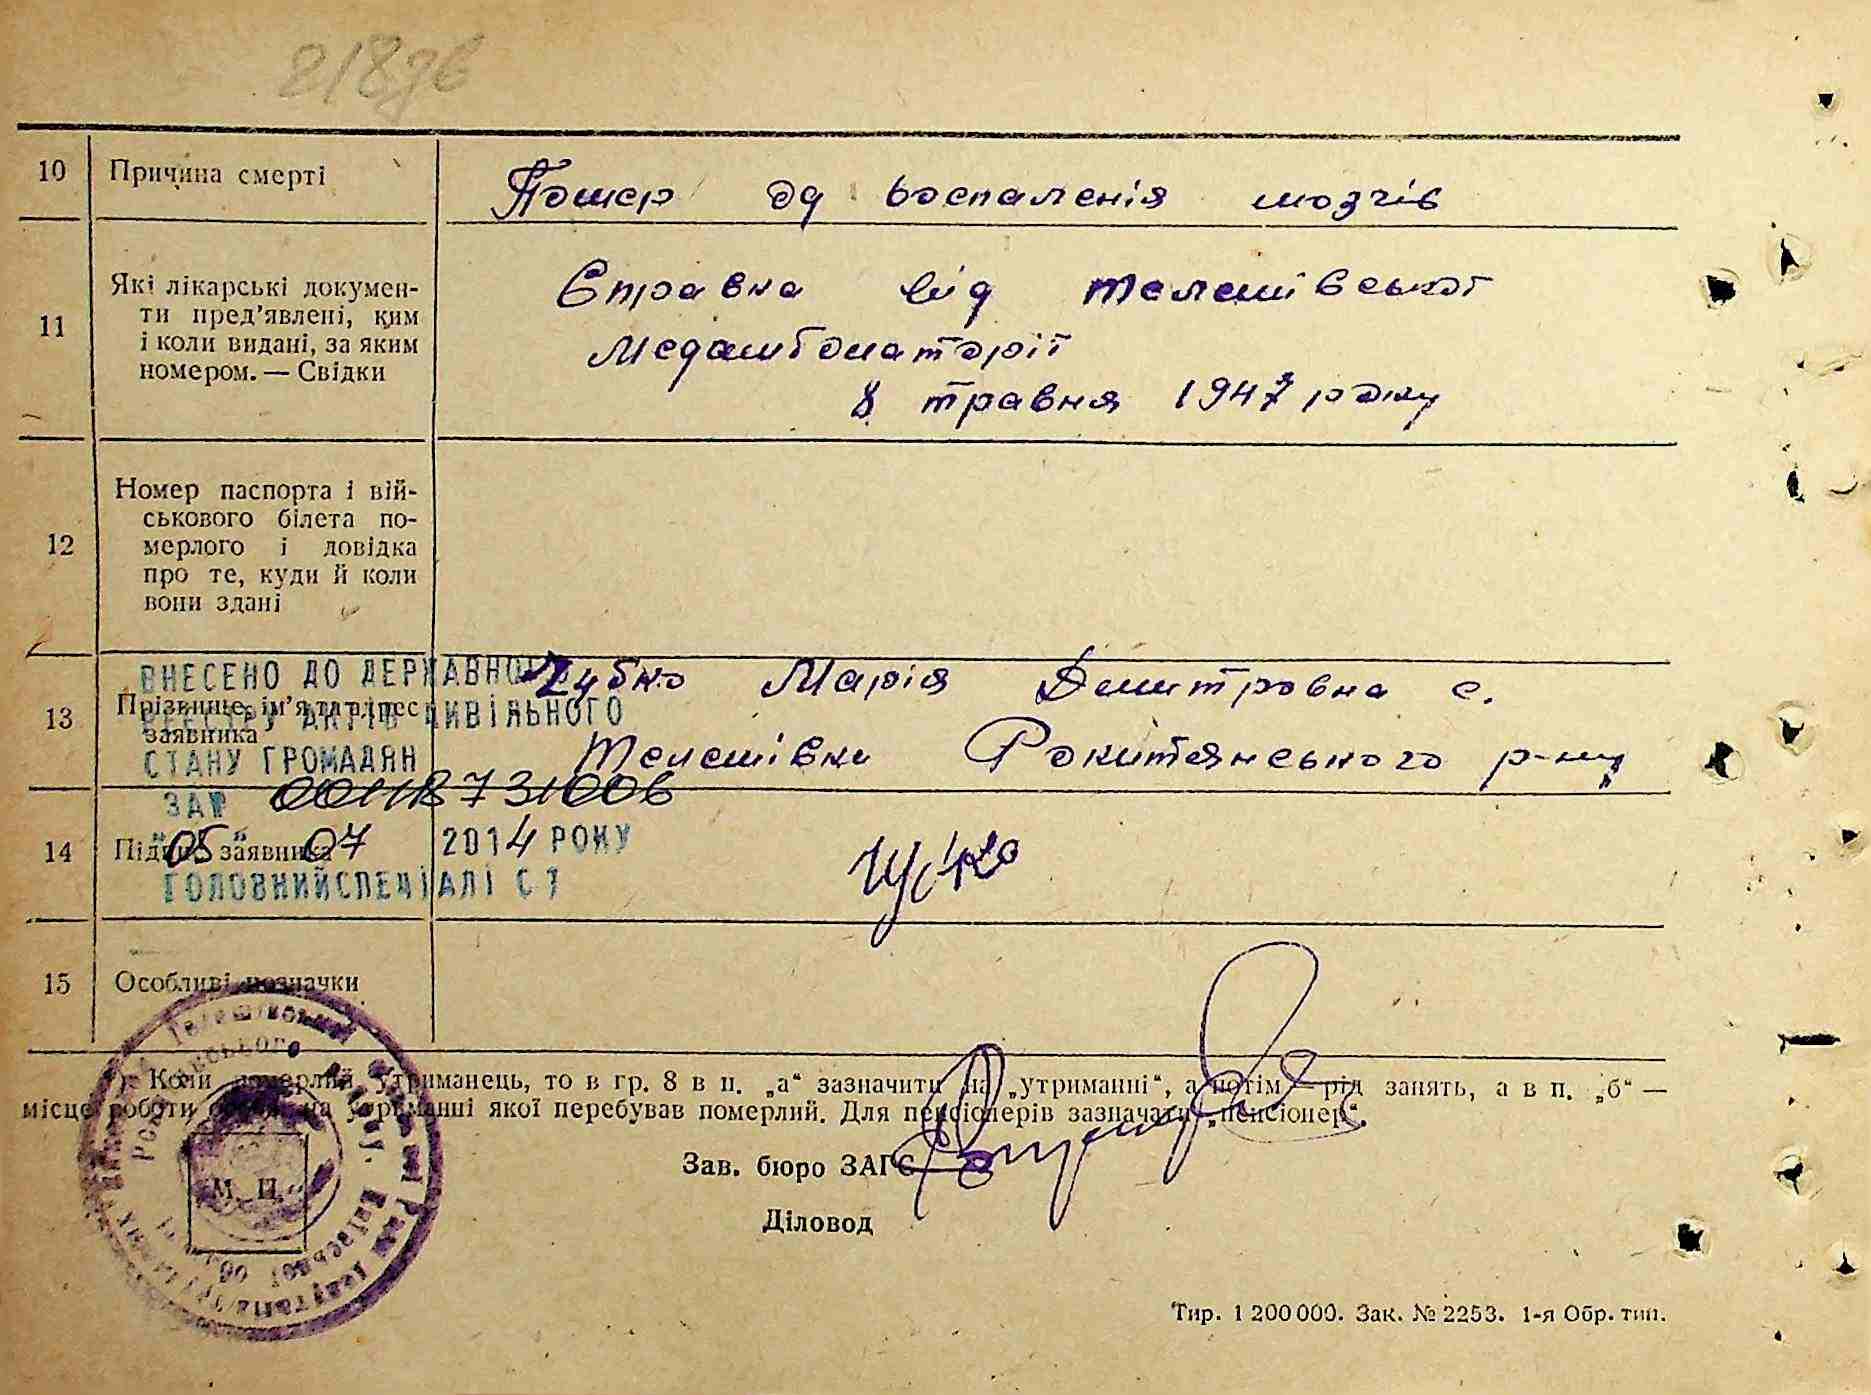 10 Причина смерті
Помер од воспаленія мозгів
11 Які лікарські докумен-
ти пред'явлені, ким
і коли видані, за яким
номером. — Свідки
Справка від Телешівської
Медамбонаторії
8 травня 1947 року
12 Номер паспорта і вій-
ськового білета по-
мерлого і довідка
про те, куди й коли
вони здані
13 Прізвище, ім'я та адрес
заявника
Марія Дмитровна с.
Телешівки Рокитянського р-ну
ВНЕСЕНО ДО ДЕРЖАВНОГО
РЕЄСТРУ АКТІВ ЦИВІЛЬНОГО
СТАНУ ГРОМАДЯН
ЗА №
05 07 2014 РОКУ
ГОЛОВНИЙ СПЕЦІАЛІСТ
14 Підпис заявника
15 Особливі позначки
Коли померлий утриманець, то в гр. 8 в п. „а“ зазначити „на утриманні“, а потім — рід занять, а в п. „б“ —
місце роботи особи, на утриманні якої перебував померлий. Для пенсіонерів зазначати „пенсіонер“.
М. П.
Зав. бюро ЗАГС
Діловод
Тир. 1 200 000. Зак. № 2253. 1-я Обр. тип.